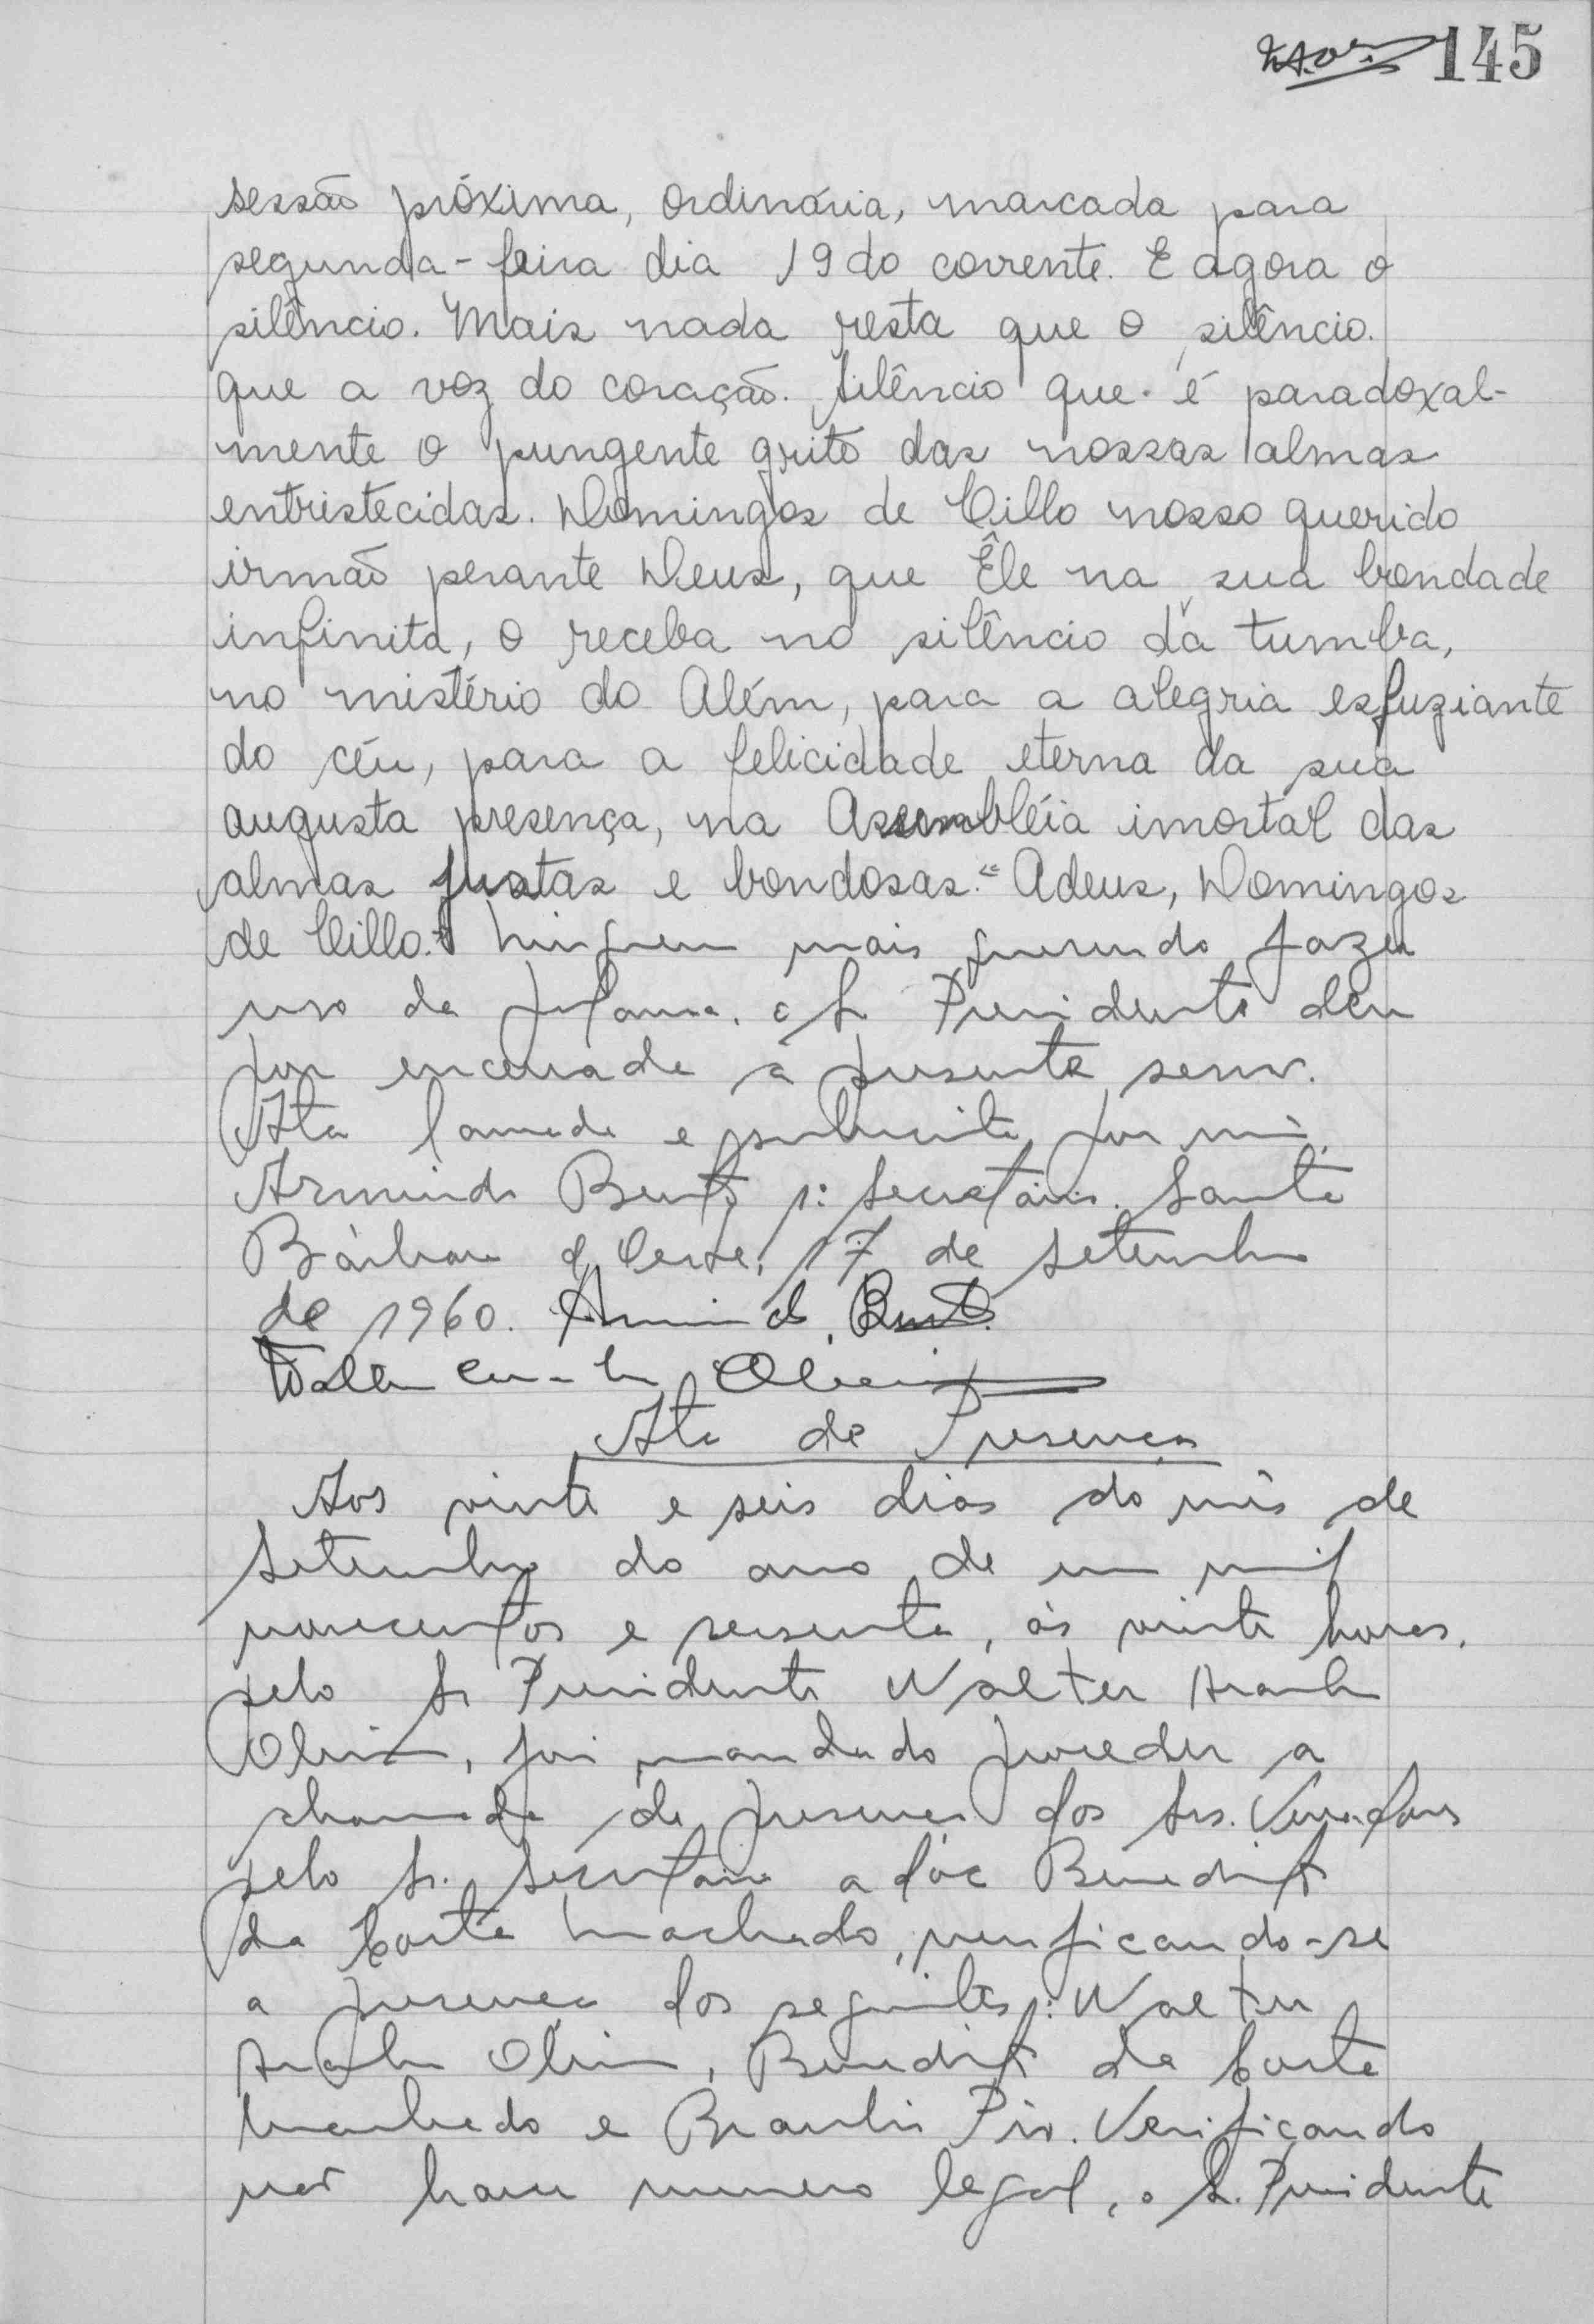 145
sessão próxima, ordinária, marcada para
segunda-feira dia 19 do corrente. E agora o
silêncio. Mais nada resta que o silêncio.
que a voz do coração. Silêncio que é paradoxal-
mente o pungente grito das nossas almas
entristecidas. Domingos de Cillo nosso querido
irmão perante Deus, que Êle na sua bondade
infinita, o receba no silêncio da tumba,
no mistério do Além, para a alegria esfuziante
do céu, para a felicidade eterna da sua
augusta presença, na Assembléia imortal das
almas justas e bondosas." Adeus, Domingos
de Cillo." Ninguem mais querendo fazer
uso da palavra, o Sr Presidente deu
por encerrada a presente sessão.
Ata lavrada e subscrita por mim,
Armindo Bento 1º Secretário. Santa
Bárbara d'Oeste, 17 de setembro
de 1960. Armindo Bento
Ata de Presença
Aos vinte e seis dias do mês de
Setembro do ano de um mil
novecentos e sessenta, às vinte horas,
pelo Sr Presidente Walter
foi mandado proceder a
chamada de presença dos Srs. Vereadores
pelo Sr. Secretário adóc Benedito
da Costa Machado, verificando-se
a presença dos seguintes: Walter
Benedito da Costa
Machado e Braulio Pio. Verificando
não haver numero legal, o Sr. Presidente